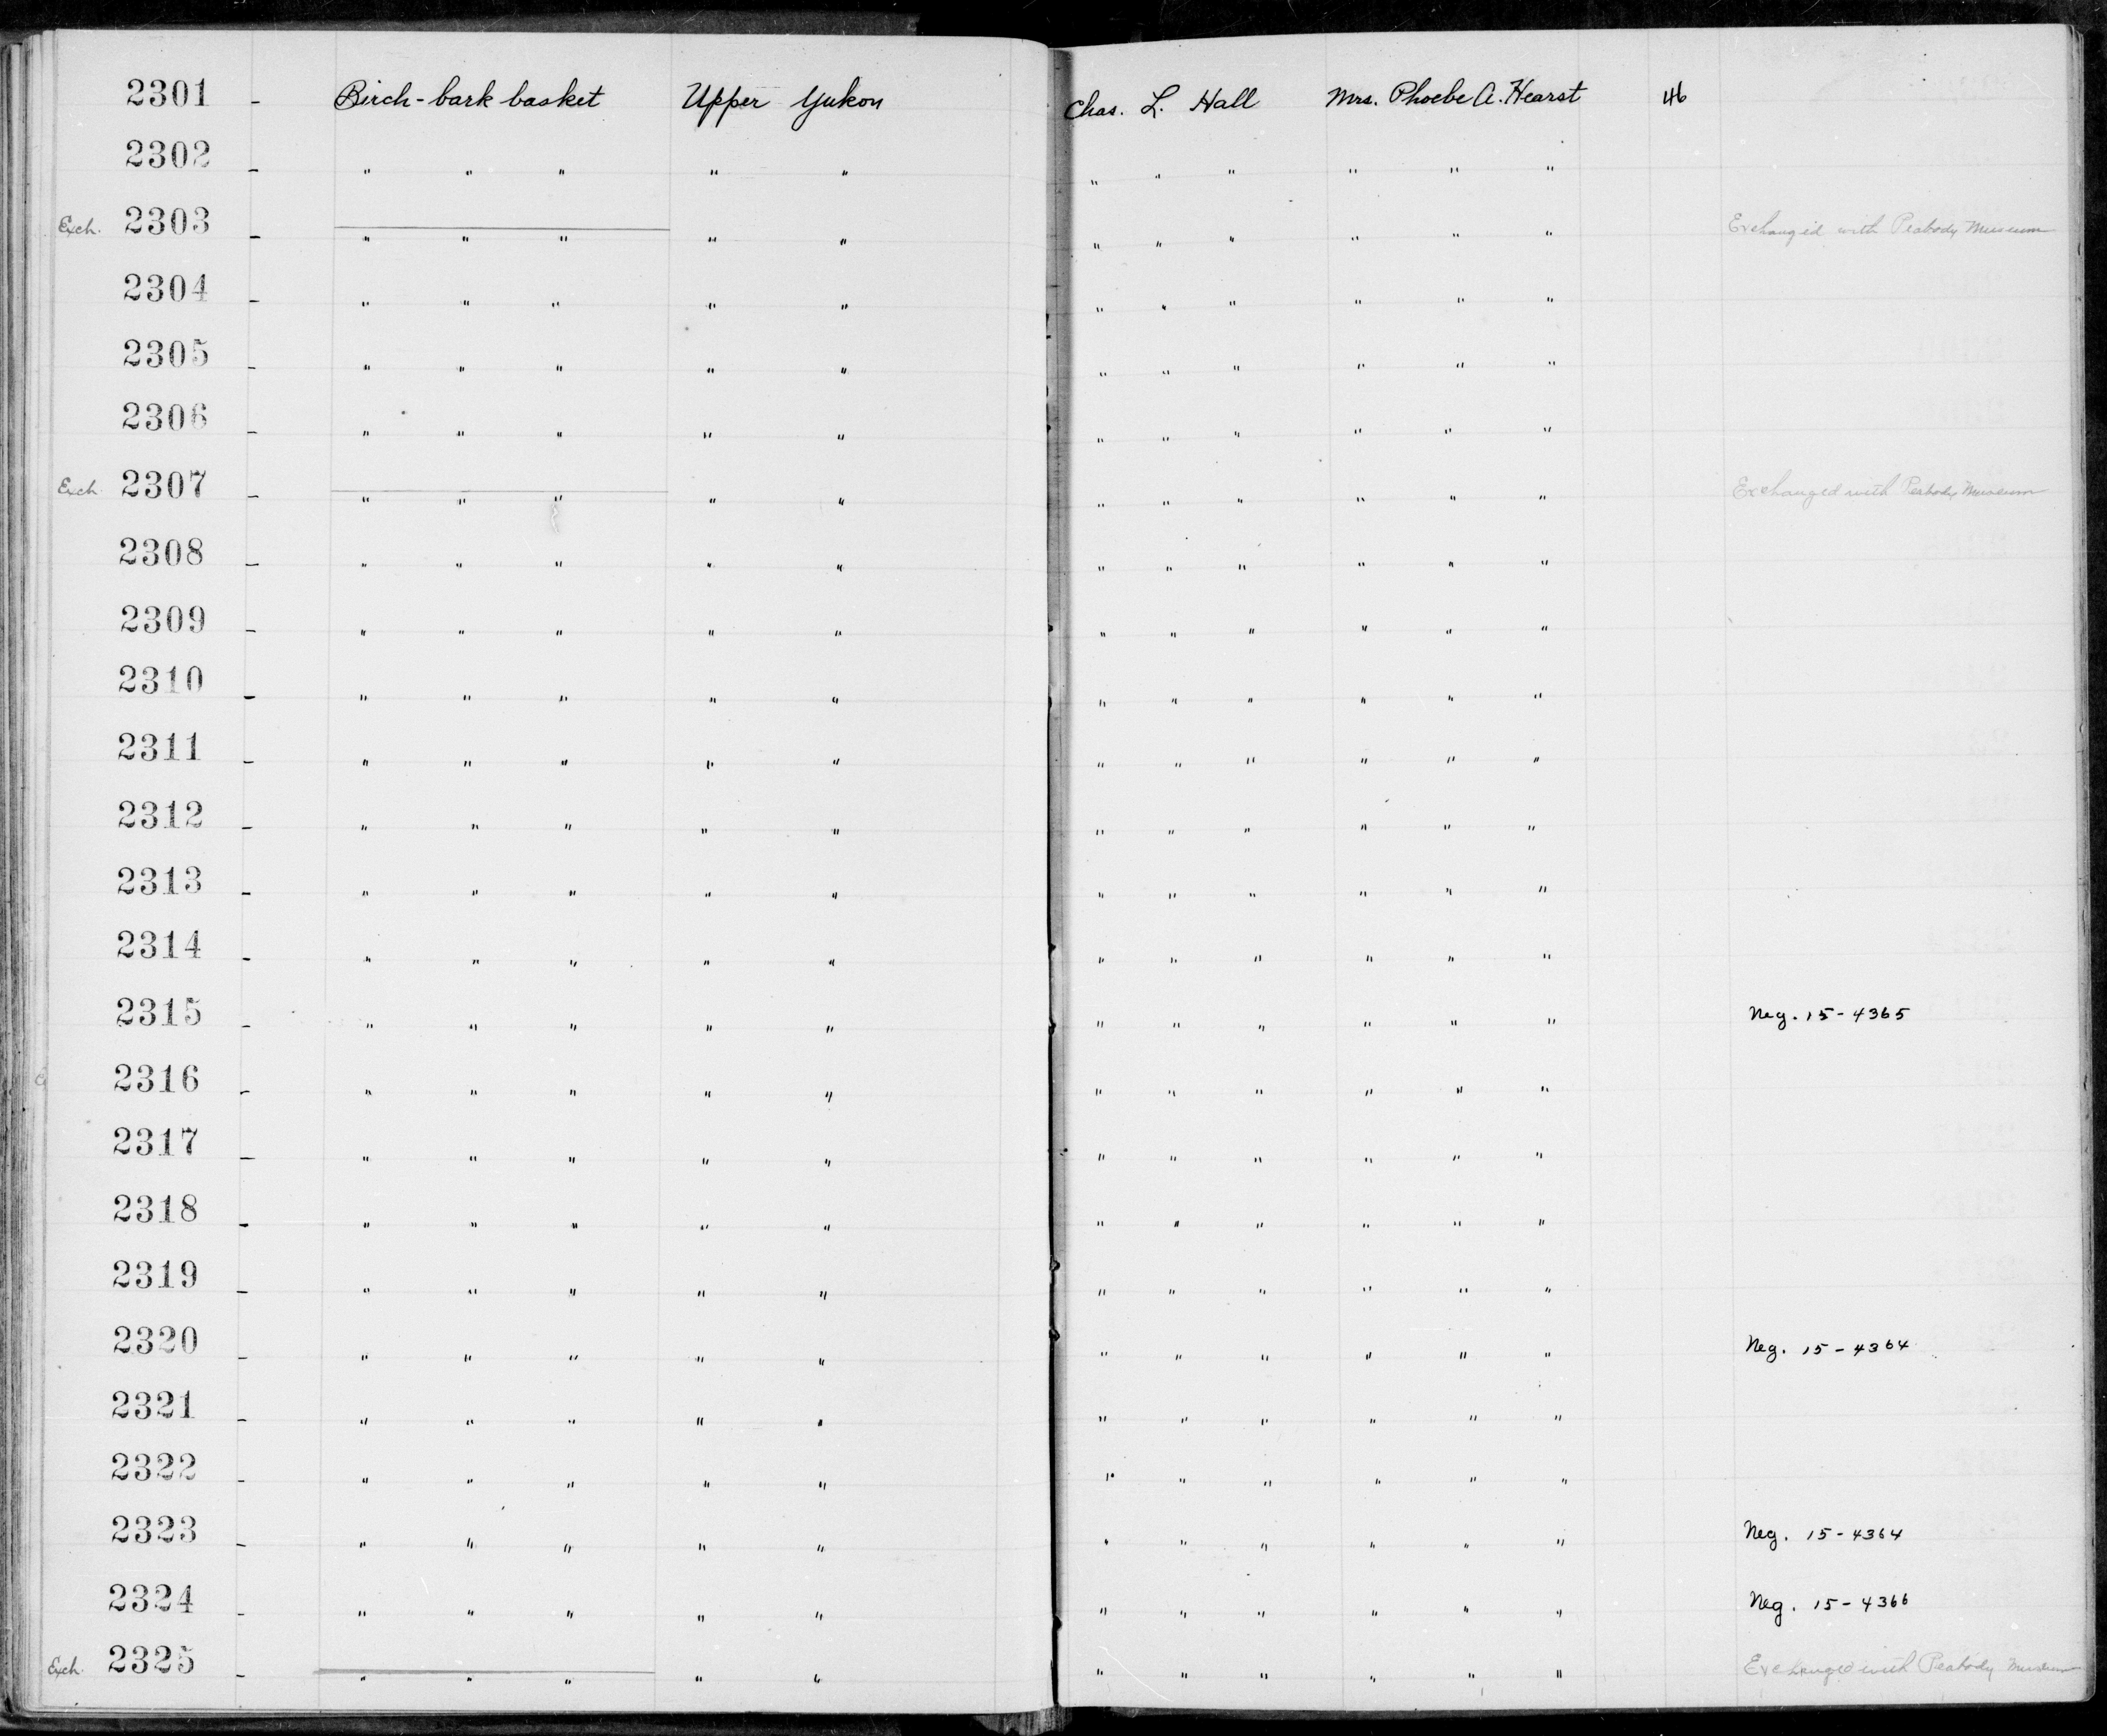 2301 - Birch-bark basket Upper Yukon Chas. L. Hall Mrs. Phoebe A. Hearst 46
2302 - " " " " " " " " " " "
Exch. 2303 - " " " " " " " " " " " Exchanged with Peabody Museum
2304 - " " " " " " " " " " "
2305 - " " " " " " " " " " "
2306 - " " " " " " " " " " "
Exch. 2307 - " " " " " " " " " " " Exchanged with Peabody Museum
2308 - " " " " " " " " " " "
2309 - " " " " " " " " " " "
2310 - " " " " " " " " " " "
2311 - " " " " " " " " " " "
2312 - " " " " " " " " " " "
2313 - " " " " " " " " " " "
2314 - " " " " " " " " " " "
2315 - " " " " " " " " " " " Neg. 15-4365
2316 - " " " " " " " " " " "
2317 - " " " " " " " " " " "
2318 - " " " " " " " " " " "
2319 - " " " " " " " " " " "
2320 - " " " " " " " " " " " Neg. 15-4364
2321 - " " " " " " " " " " "
2322 - " " " " " " " " " " "
2323 - " " " " " " " " " " " Neg. 15-4364
2324 - " " " " " " " " " " " Neg. 15-4366
Exch. 2325 - " " " " " " " " " " " Exchanged with Peabody Museum